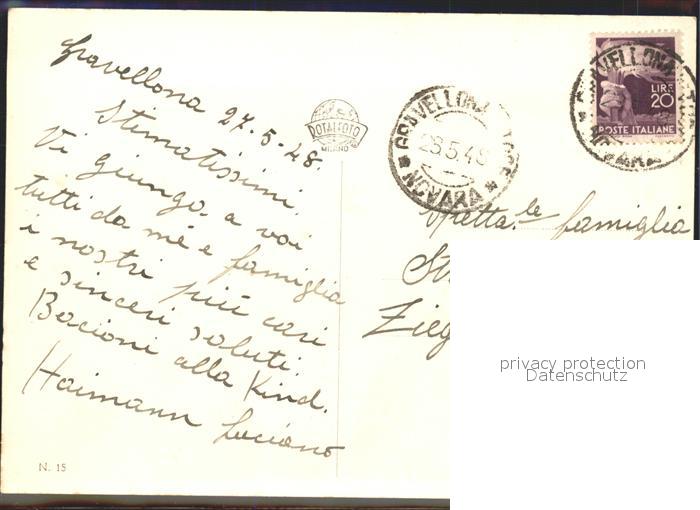 Gravellona 27-5-48.
Stimatissimi.
Vi giunga a voi
tutti da me e famiglia
i nostri più cari
e sinceri saluti.
Bacioni alla Kind.
Haimann Luciano
N. 15
DOTALFOTO
MILANO
GRAVELLONA TOCE
28.5.48
NOVARA
LIRE
20
POSTE ITALIANE
GRAVELLONA TOCE
NOVARA
Spetta.le famiglia
St
Zieg
privacy protection
Datenschutz